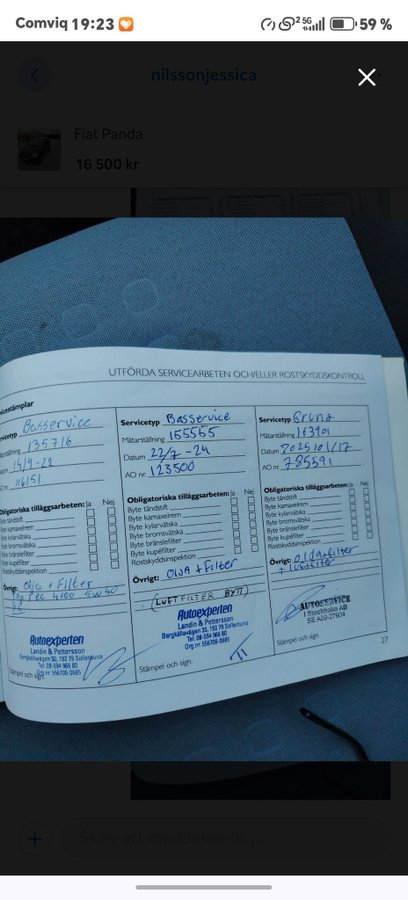 Comviq 19:23
5G
59 %
nilssonjessica
Fiat Panda
16 500 kr
UTFÖRDA SERVICEARBETEN OCH/ELLER ROSTSKYDDSKONTROLL
Basservice
135716
14/9-22
116151
Obligatoriska tilläggsarbeten: Ja Nej
Byte tändstift
Byte kamaxelrem
Byte kylarvätska
Byte bromsvätska
Byte bränslefilter
Byte kupéfilter
Rostskyddsinspektion
Övrigt: Olja + Filter
Top Tec 4100 5W40
Autoexperten
Landin & Pettersson
Bergkällavägen 30, 192 79 Sollentuna
Tel: 08-594 966 80
Org nr. 556706-0685
Stämpel och sign
Servicetyp Basservice
Mätarställning 155555
Datum 22/7-24
AO nr 123500
Obligatoriska tilläggsarbeten: Ja Nej
Byte tändstift
Byte kamaxelrem
Byte kylarvätska
Byte bromsvätska
Byte bränslefilter
Byte kupéfilter
Rostskyddsinspektion
Övrigt: Olja + Filter
(LUFTFILTER BYTT)
Autoexperten
Landin & Pettersson
Bergkällavägen 30, 192 79 Sollentuna
Tel: 08-594 966 80
Org nr. 556706-0685
Stämpel och sign
Servicetyp Grund
Mätarställning
Datum 2025/01/17
AO nr 785591
Obligatoriska tilläggsarbeten: Ja Nej
Byte tändstift
Byte kamaxelrem
Byte kylarvätska
Byte bromsvätska
Byte bränslefilter
Byte kupéfilter
Rostskyddsinspektion
Övrigt:
+ luftfilter
AUTOSERVICE
I Stockholm AB
SE A00-27904
Stämpel och sign.
27
Skriv ett meddelande ...